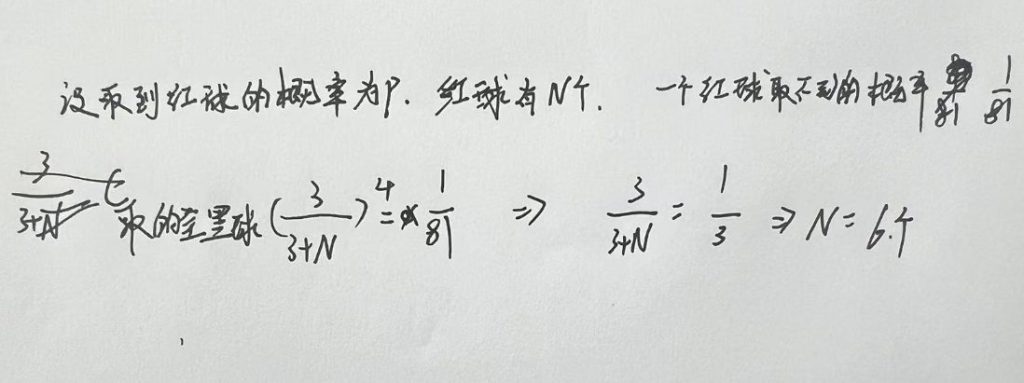 设取到红球的概率为P. 红球有N个. 一个红球取不到的概率 1/81
取的全黑球 (3/(3+N))^4 = 1/81 ⇒ 3/(3+N) = 1/3 ⇒ N = 6个